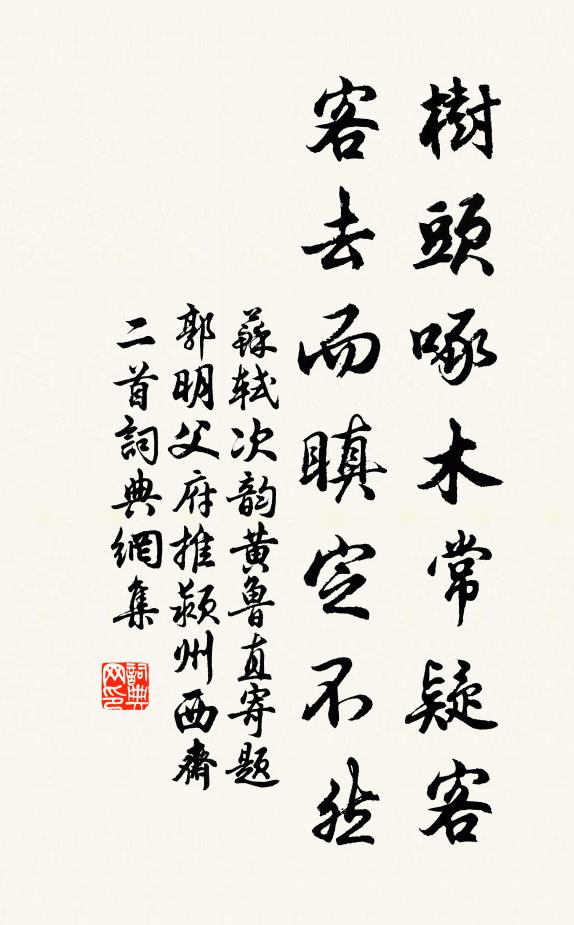 樹頭啄木常疑客
客去而瞋定不然
蘇軾次韵黄魯直寄題
郭明父府推潁州西齋
二首詞典網集
詞典網印